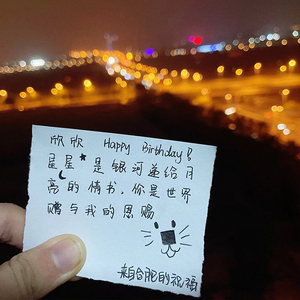 欣欣 Happy Birthday!
星星★是银河递给月
亮的情书，你是世界
赠与我的恩赐
来自合肥的祝福